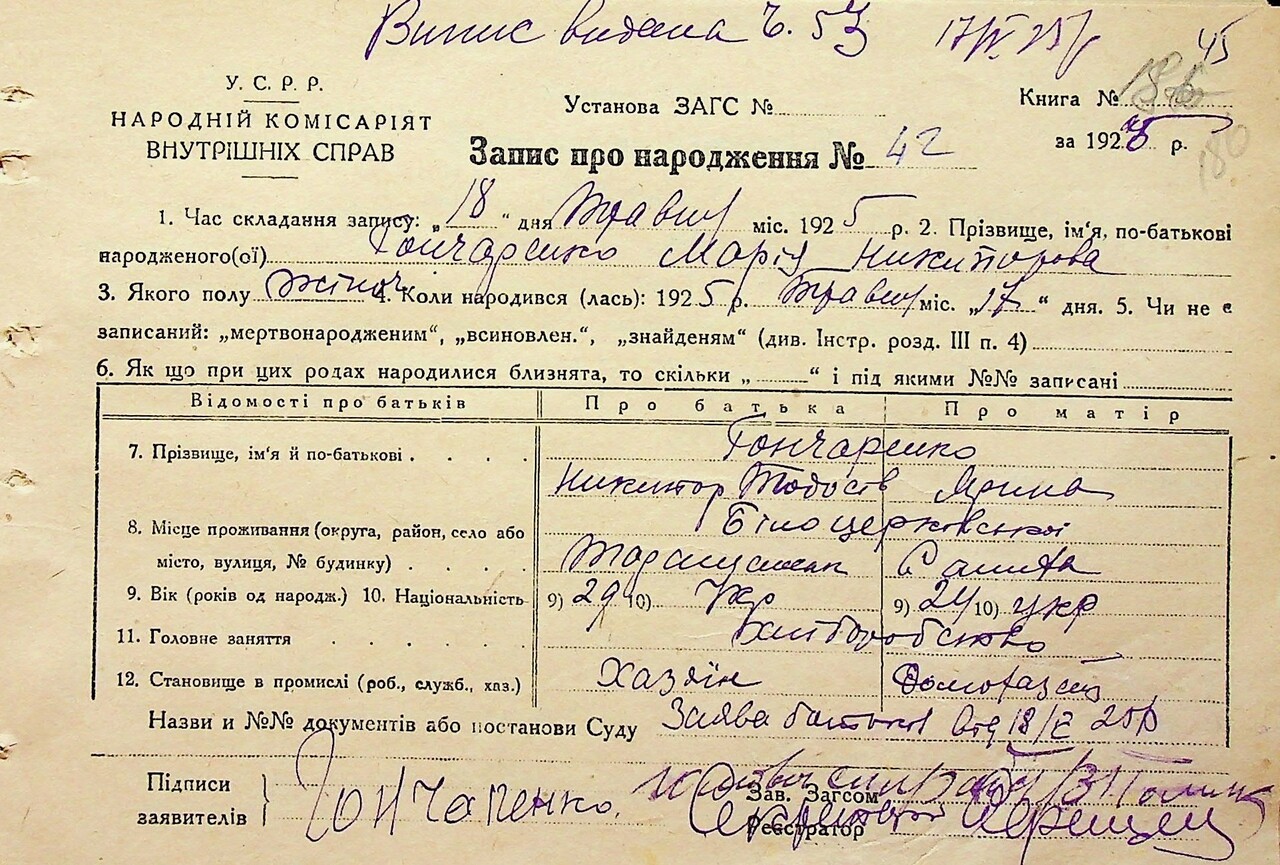 Випис видана Ч. 53 17/IV 25 р 45
У. С. Р. Р.
НАРОДНІЙ КОМІСАРІЯТ
ВНУТРІШНІХ СПРАВ
Установа ЗАГС №
Книга № 186
180
за 1925 р.
Запис про народження № 42
1. Час складання запису: „18“ дня Травня міс. 1925 р. 2. Прізвище, ім'я, по-батькові
народженого(ої) Гончаренко Марія Никипорова
3. Якого полу жіноч 4. Коли народився (лась): 1925 р. Травня міс. „17“ дня. 5. Чи не є
записаний: „мертвонародженим“, „всиновлен.“, „знайденям“ (див. Інстр. розд. III п. 4)
6. Як що при цих родах народилися близнята, то скільки „ “ і під якими №№ записані
Відомості про батьків Про батька Про матір
Гончаренко
7. Прізвище, ім'я й по-батькові
Никипор Тодосів Ярина
8. Місце проживання (округа, район, село або Білоцерковської
місто, вулиця, № будинку)
9. Вік (років од народж.) 10. Національність 9) 29 10) Укр 9) 24 10) укр
11. Головне заняття хліборобство
12. Становище в промислі (роб., служб., хаз.) Хазяїн
Назви и №№ документів або постанови Суду Заява батька від 18/V 25 р
Підписи
заявителів
Гончаренко.
Зав. Загсом
Реєстратор
Секретар